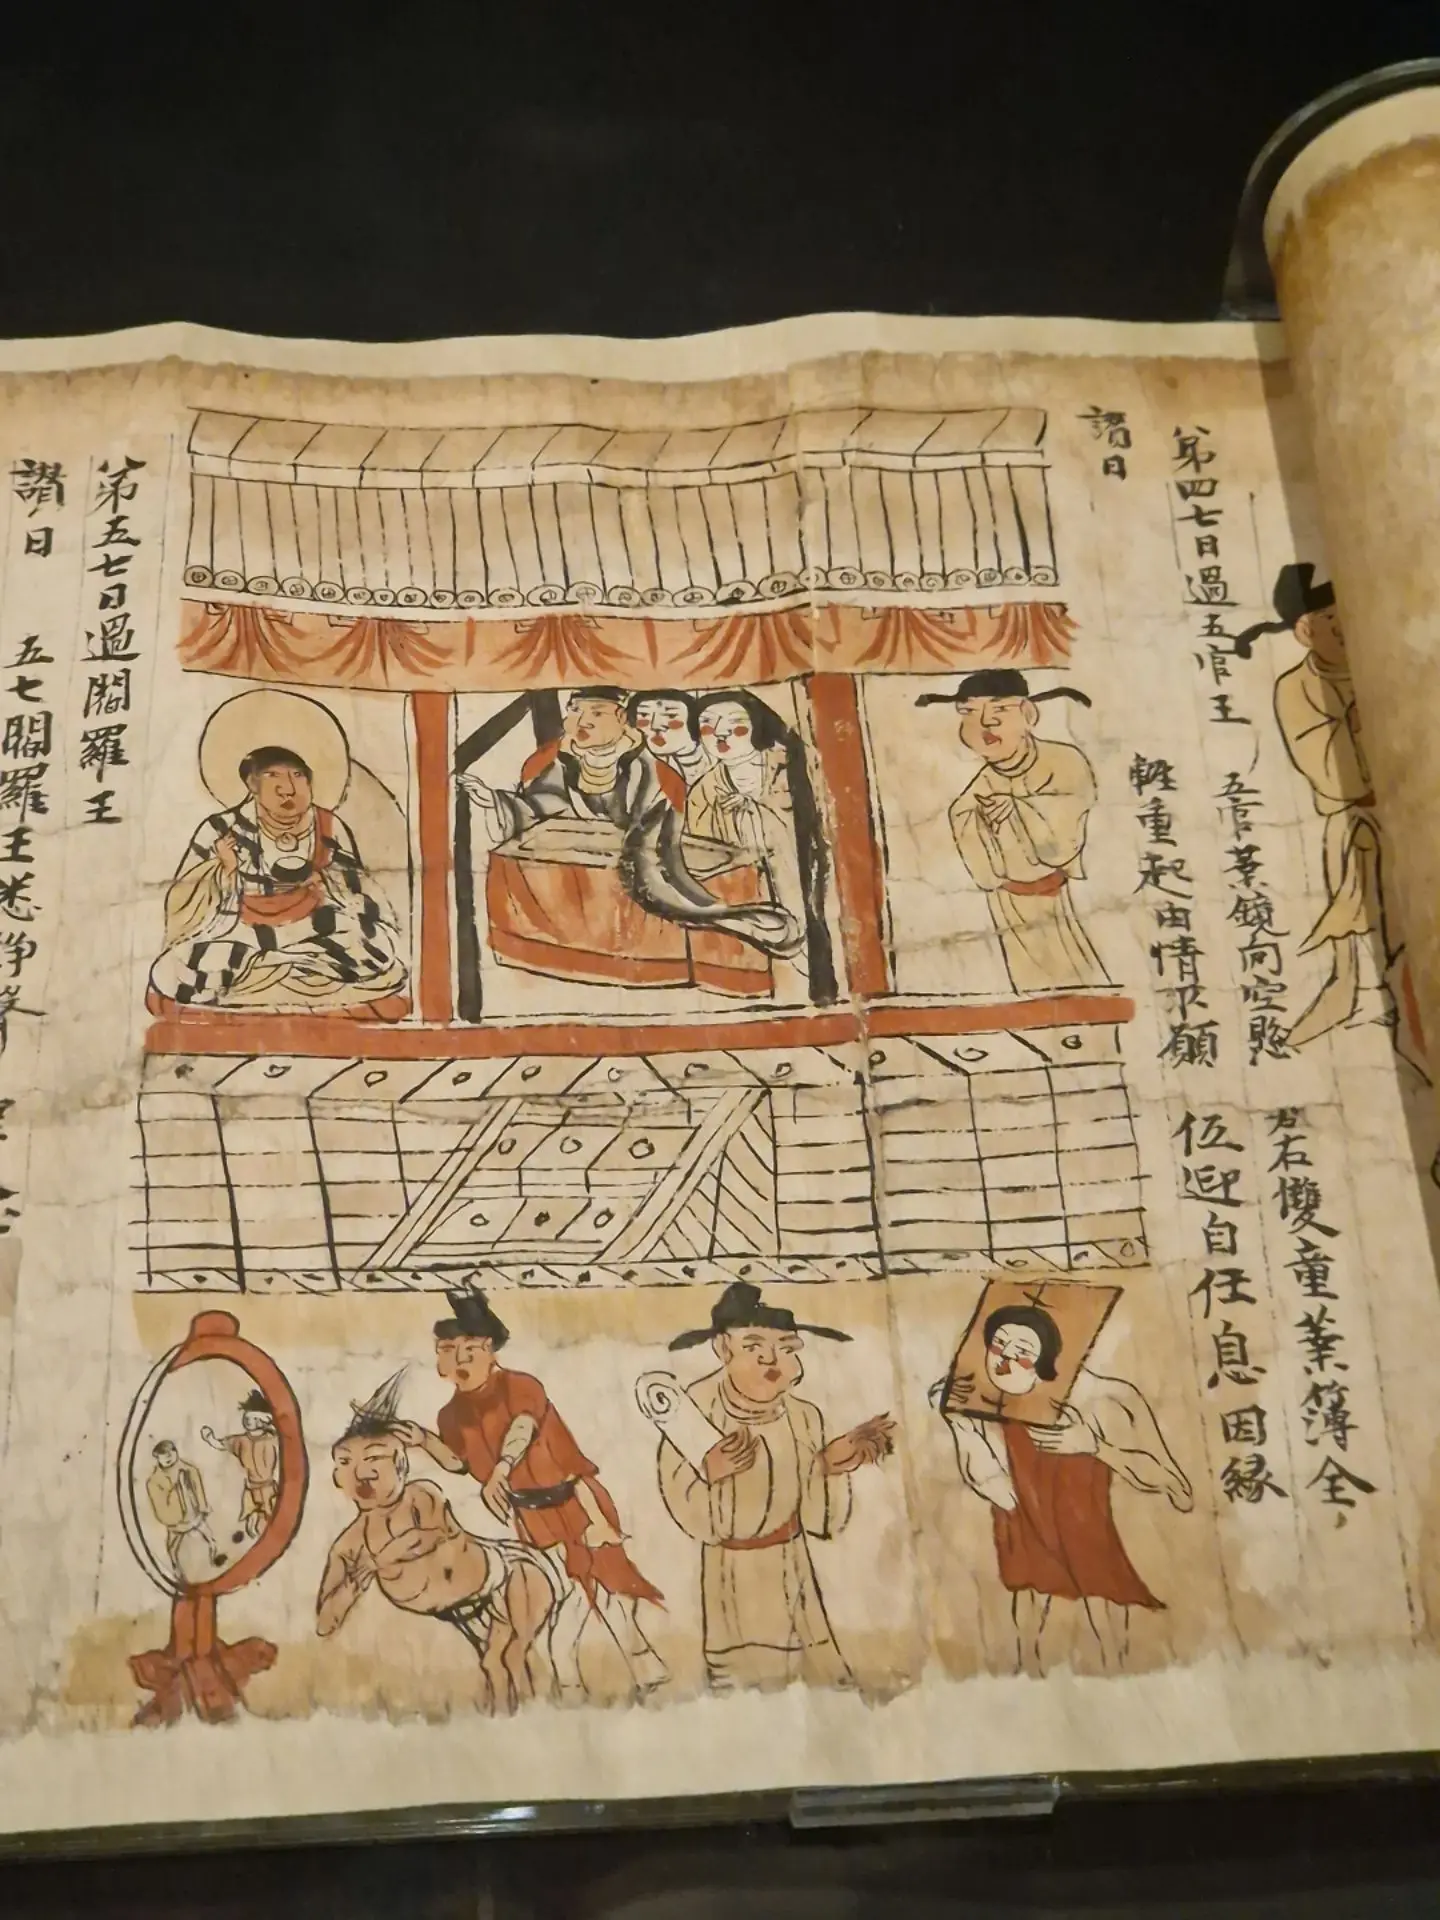 第四七日過五官王
讃曰
五官業鏡向空懸
左右雙童業簿全
輕重起由情所願
伍迎自任息因緣
第五七日過閻羅王
讃曰
五七閻羅王悉諍聲